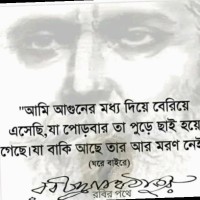 "আমি আগুনের মধ্য দিয়ে বেরিয়ে
এসেছি,যা পোড়বার তা পুড়ে ছাই হয়ে
গেছে।যা বাকি আছে তার আর মরণ নেই
(ঘরে বাইরে)
রবির পথে